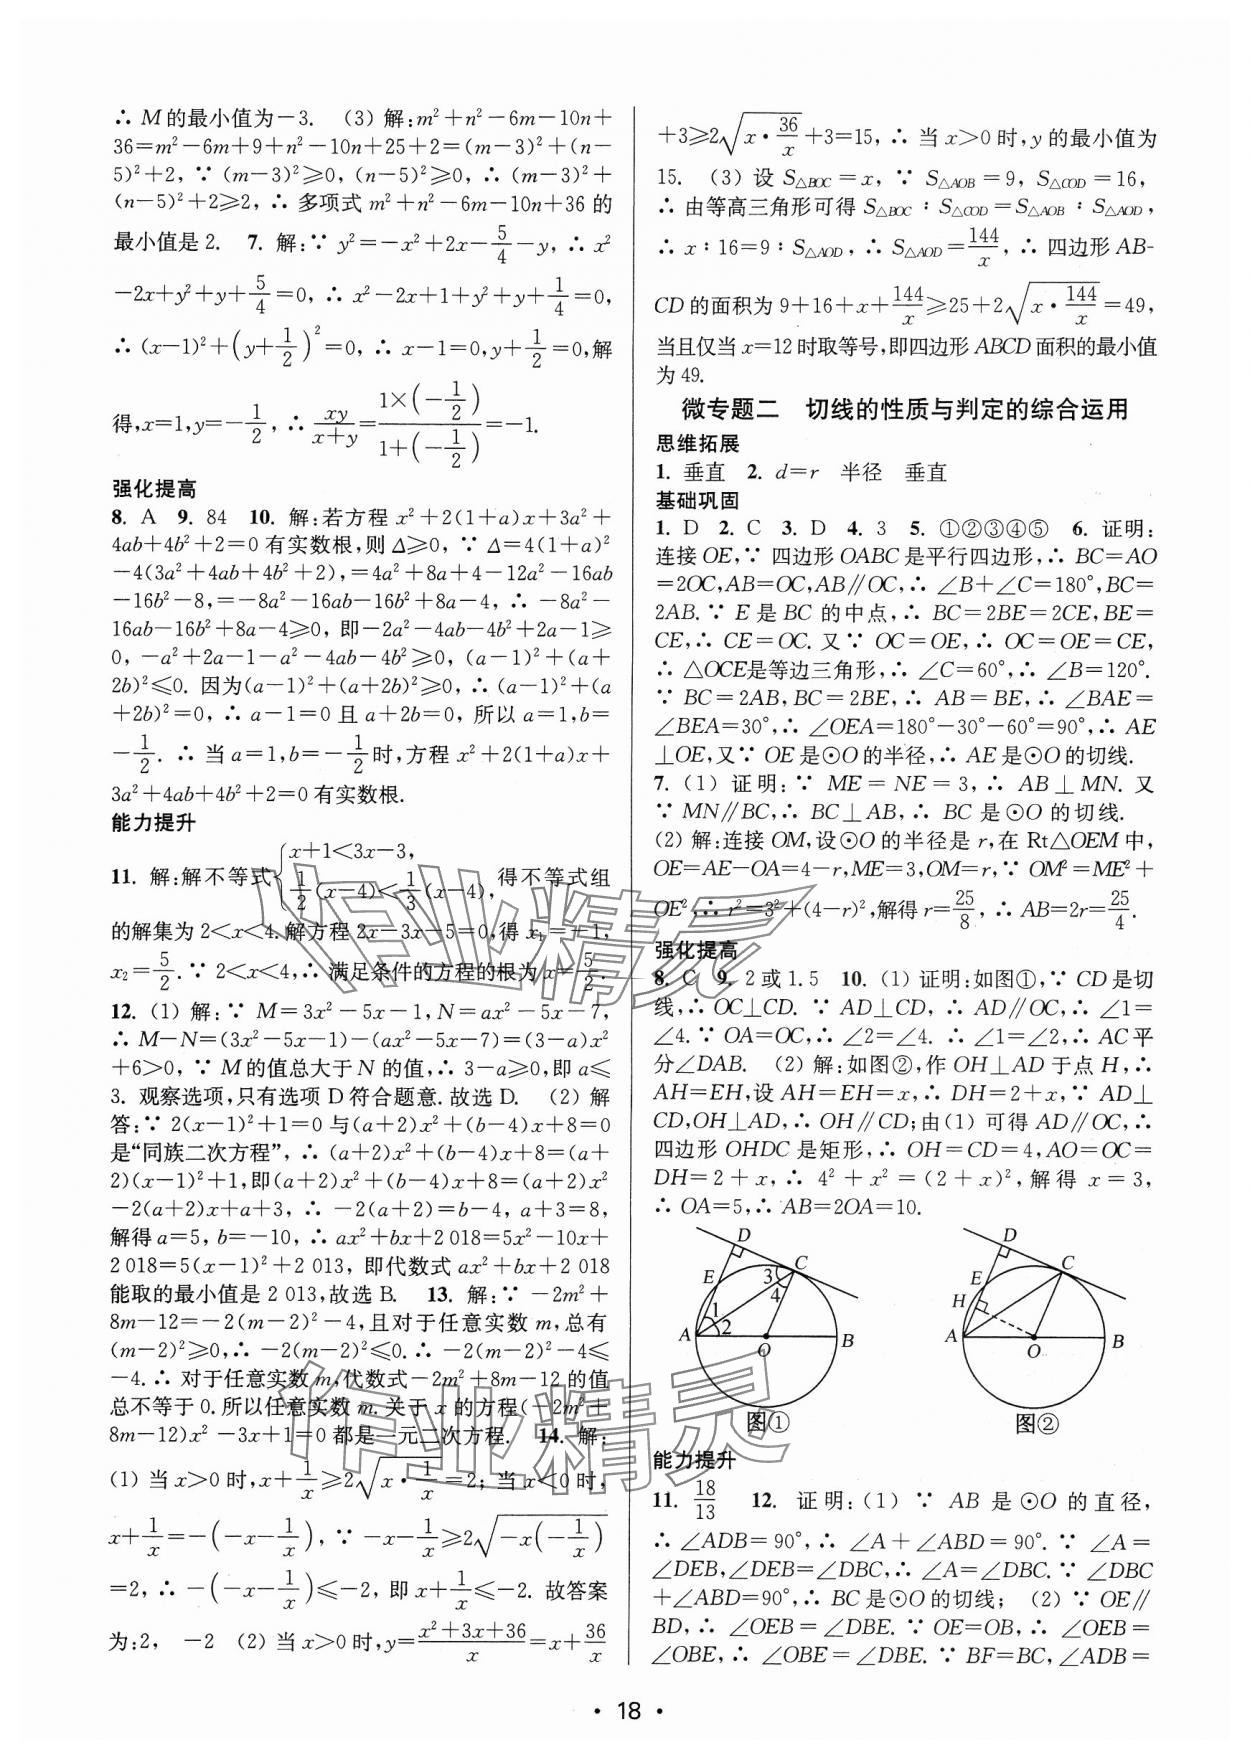 ∴ M的最小值为－3. (3) 解:m²＋n²－6m－10n＋
36＝m²－6m＋9＋n²－10n＋25＋2＝(m－3)²＋(n－
5)²＋2, ∵ (m－3)²⩾0, (n－5)²⩾0, ∴ (m－3)²＋
(n－5)²＋2⩾2, ∴ 多项式 m²＋n²－6m－10n＋36 的
最小值是 2. 7. 解:∵ y²＝－x²＋2x－5/4－y, ∴ x²
－2x＋y²＋y＋5/4＝0, ∴ x²－2x＋1＋y²＋y＋1/4＝0,
∴ (x－1)²＋(y＋1/2)²＝0, ∴ x－1＝0,y＋1/2＝0,解
得,x＝1,y＝－1/2, ∴ xy/(x＋y)＝[1×(－1/2)]/[1＋(－1/2)]＝－1.
强化提高
8. A 9. 84 10. 解:若方程 x²＋2(1＋a)x＋3a²＋
4ab＋4b²＋2＝0 有实数根,则 Δ⩾0, ∵ Δ＝4(1＋a)²
－4(3a²＋4ab＋4b²＋2),＝4a²＋8a＋4－12a²－16ab
－16b²－8,＝－8a²－16ab－16b²＋8a－4, ∴ －8a²－
16ab－16b²＋8a－4⩾0, 即－2a²－4ab－4b²＋2a－1⩾
0, －a²＋2a－1－a²－4ab－4b²⩾0, (a－1)²＋(a＋
2b)²⩽0. 因为(a－1)²＋(a＋2b)²⩾0, ∴ (a－1)²＋(a
＋2b)²＝0, ∴ a－1＝0 且 a＋2b＝0, 所以 a＝1,b＝
－1/2. ∴ 当 a＝1,b＝－1/2时,方程 x²＋2(1＋a)x＋
3a²＋4ab＋4b²＋2＝0 有实数根.
能力提升
11. 解:解不等式{x＋1＜3x－3, 1/2(x－4)＜1/3(x－4), 得不等式组
的解集为 2＜x＜4.解方程 2x－3x－5＝0,得 x₁＝－1,
x₂＝5/2.∵ 2＜x＜4,∴ 满足条件的方程的根为 x＝5/2.
12. (1) 解:∵ M＝3x²－5x－1,N＝ax²－5x－7,
∴ M－N＝(3x²－5x－1)－(ax²－5x－7)＝(3－a)x²
＋6＞0, ∵ M的值总大于 N 的值,∴ 3－a⩾0,即 a⩽
3. 观察选项,只有选项 D 符合题意.故选 D. (2) 解
答:∵ 2(x－1)²＋1＝0 与(a＋2)x²＋(b－4)x＋8＝0
是“同族二次方程”, ∴ (a＋2)x²＋(b－4)x＋8＝(a＋
2)(x－1)²＋1,即(a＋2)x²＋(b－4)x＋8＝(a＋2)x²
－2(a＋2)x＋a＋3, ∴ －2(a＋2)＝b－4, a＋3＝8,
解得 a＝5, b＝－10, ∴ ax²＋bx＋2 018＝5x²－10x＋
2 018＝5(x－1)²＋2 013, 即代数式 ax²＋bx＋2 018
能取的最小值是 2 013,故选 B. 13. 解:∵ －2m²＋
8m－12＝－2(m－2)²－4,且对于任意实数 m,总有
(m－2)²⩾0,∴ －2(m－2)²⩽0.∴ －2(m－2)²－4⩽
－4.∴ 对于任意实数 m,代数式－2m²＋8m－12 的值
总不等于 0.所以任意实数 m,关于 x 的方程(－2m²＋
8m－12)x²－3x＋1＝0 都是一元二次方程. 14. 解:
(1) 当 x＞0 时,x＋1/x⩾2√(x·1/x)＝2; 当 x＜0 时,
x＋1/x＝－(－x－1/x), ∵ －x－1/x⩾2√(－x(－1/x))
＝2, ∴ －(－x－1/x)⩽－2, 即 x＋1/x⩽－2. 故答案
为:2, －2 (2) 当 x＞0 时,y＝(x²＋3x＋36)/x＝x＋36/x
＋3⩾2√(x·36/x)＋3＝15, ∴ 当 x＞0 时,y 的最小值为
15. (3) 设 S△BOC＝x, ∵ S△AOB＝9, S△COD＝16,
∴ 由等高三角形可得 S△BOC∶S△COD＝S△AOB∶S△AOD,
∴ x∶16＝9∶S△AOD, ∴ S△AOD＝144/x, ∴ 四边形 AB-
CD 的面积为 9＋16＋x＋144/x⩾25＋2√(x·144/x)＝49,
当且仅当 x＝12 时取等号,即四边形 ABCD 面积的最小值
为 49.
微专题二 切线的性质与判定的综合运用
思维拓展
1. 垂直 2. d＝r 半径 垂直
基础巩固
1. D 2. C 3. D 4. 3 5. ①②③④⑤ 6. 证明:
连接 OE,∵ 四边形 OABC 是平行四边形,∴ BC＝AO
＝2OC,AB＝OC,AB∥OC,∴ ∠B＋∠C＝180°,BC＝
2AB.∵ E 是 BC 的中点,∴ BC＝2BE＝2CE,BE＝
CE,∴ CE＝OC. 又∵ OC＝OE,∴ OC＝OE＝CE,
∴ △OCE是等边三角形,∴ ∠C＝60°,∴ ∠B＝120°.
∵ BC＝2AB,BC＝2BE,∴ AB＝BE,∴ ∠BAE＝
∠BEA＝30°,∴ ∠OEA＝180°－30°－60°＝90°,∴ AE
⊥OE,又∵ OE是⊙O的半径,∴ AE是⊙O的切线.
7. (1) 证明:∵ ME＝NE＝3,∴ AB⊥MN. 又
∵ MN∥BC,∴ BC⊥AB,∴ BC 是⊙O 的切线.
(2) 解:连接 OM,设⊙O 的半径是 r,在 Rt△OEM 中,
OE＝AE－OA＝4－r,ME＝3,OM＝r,∵ OM²＝ME²＋
OE²,∴ r²＝3²＋(4－r)²,解得 r＝25/8, ∴ AB＝2r＝25/4.
强化提高
8. C 9. 2 或 1.5 10. (1) 证明:如图①,∵ CD 是切
线,∴ OC⊥CD. ∵ AD⊥CD, ∴ AD∥OC,∴ ∠1＝
∠4.∵ OA＝OC,∴ ∠2＝∠4. ∴ ∠1＝∠2,∴ AC 平
分∠DAB. (2) 解:如图②,作 OH⊥AD 于点 H,∴
AH＝EH,设 AH＝EH＝x,∴ DH＝2＋x,∵ AD⊥
CD,OH⊥AD,∴ OH∥CD;由(1) 可得 AD∥OC,∴
四边形 OHDC 是矩形,∴ OH＝CD＝4,AO＝OC＝
DH＝2＋x,∴ 4²＋x²＝(2＋x)²,解得 x＝3,
∴ OA＝5,∴ AB＝2OA＝10.
D
E
C
3
4
1
2
A
O
B
图①
D
E
C
H
A
O
B
图②
能力提升
11. 18/13 12. 证明:(1) ∵ AB 是⊙O 的直径,
∴ ∠ADB＝90°,∴ ∠A＋∠ABD＝90°. ∵ ∠A＝
∠DEB,∠DEB＝∠DBC,∴ ∠A＝∠DBC.∵ ∠DBC
＋∠ABD＝90°,∴ BC 是⊙O的切线; (2) ∵ OE∥
BD,∴ ∠OEB＝∠DBE. ∵ OE＝OB,∴ ∠OEB＝
∠OBE,∴ ∠OBE＝∠DBE. ∵ BF＝BC,∠ADB＝
• 18 •
作业精灵
作业精灵